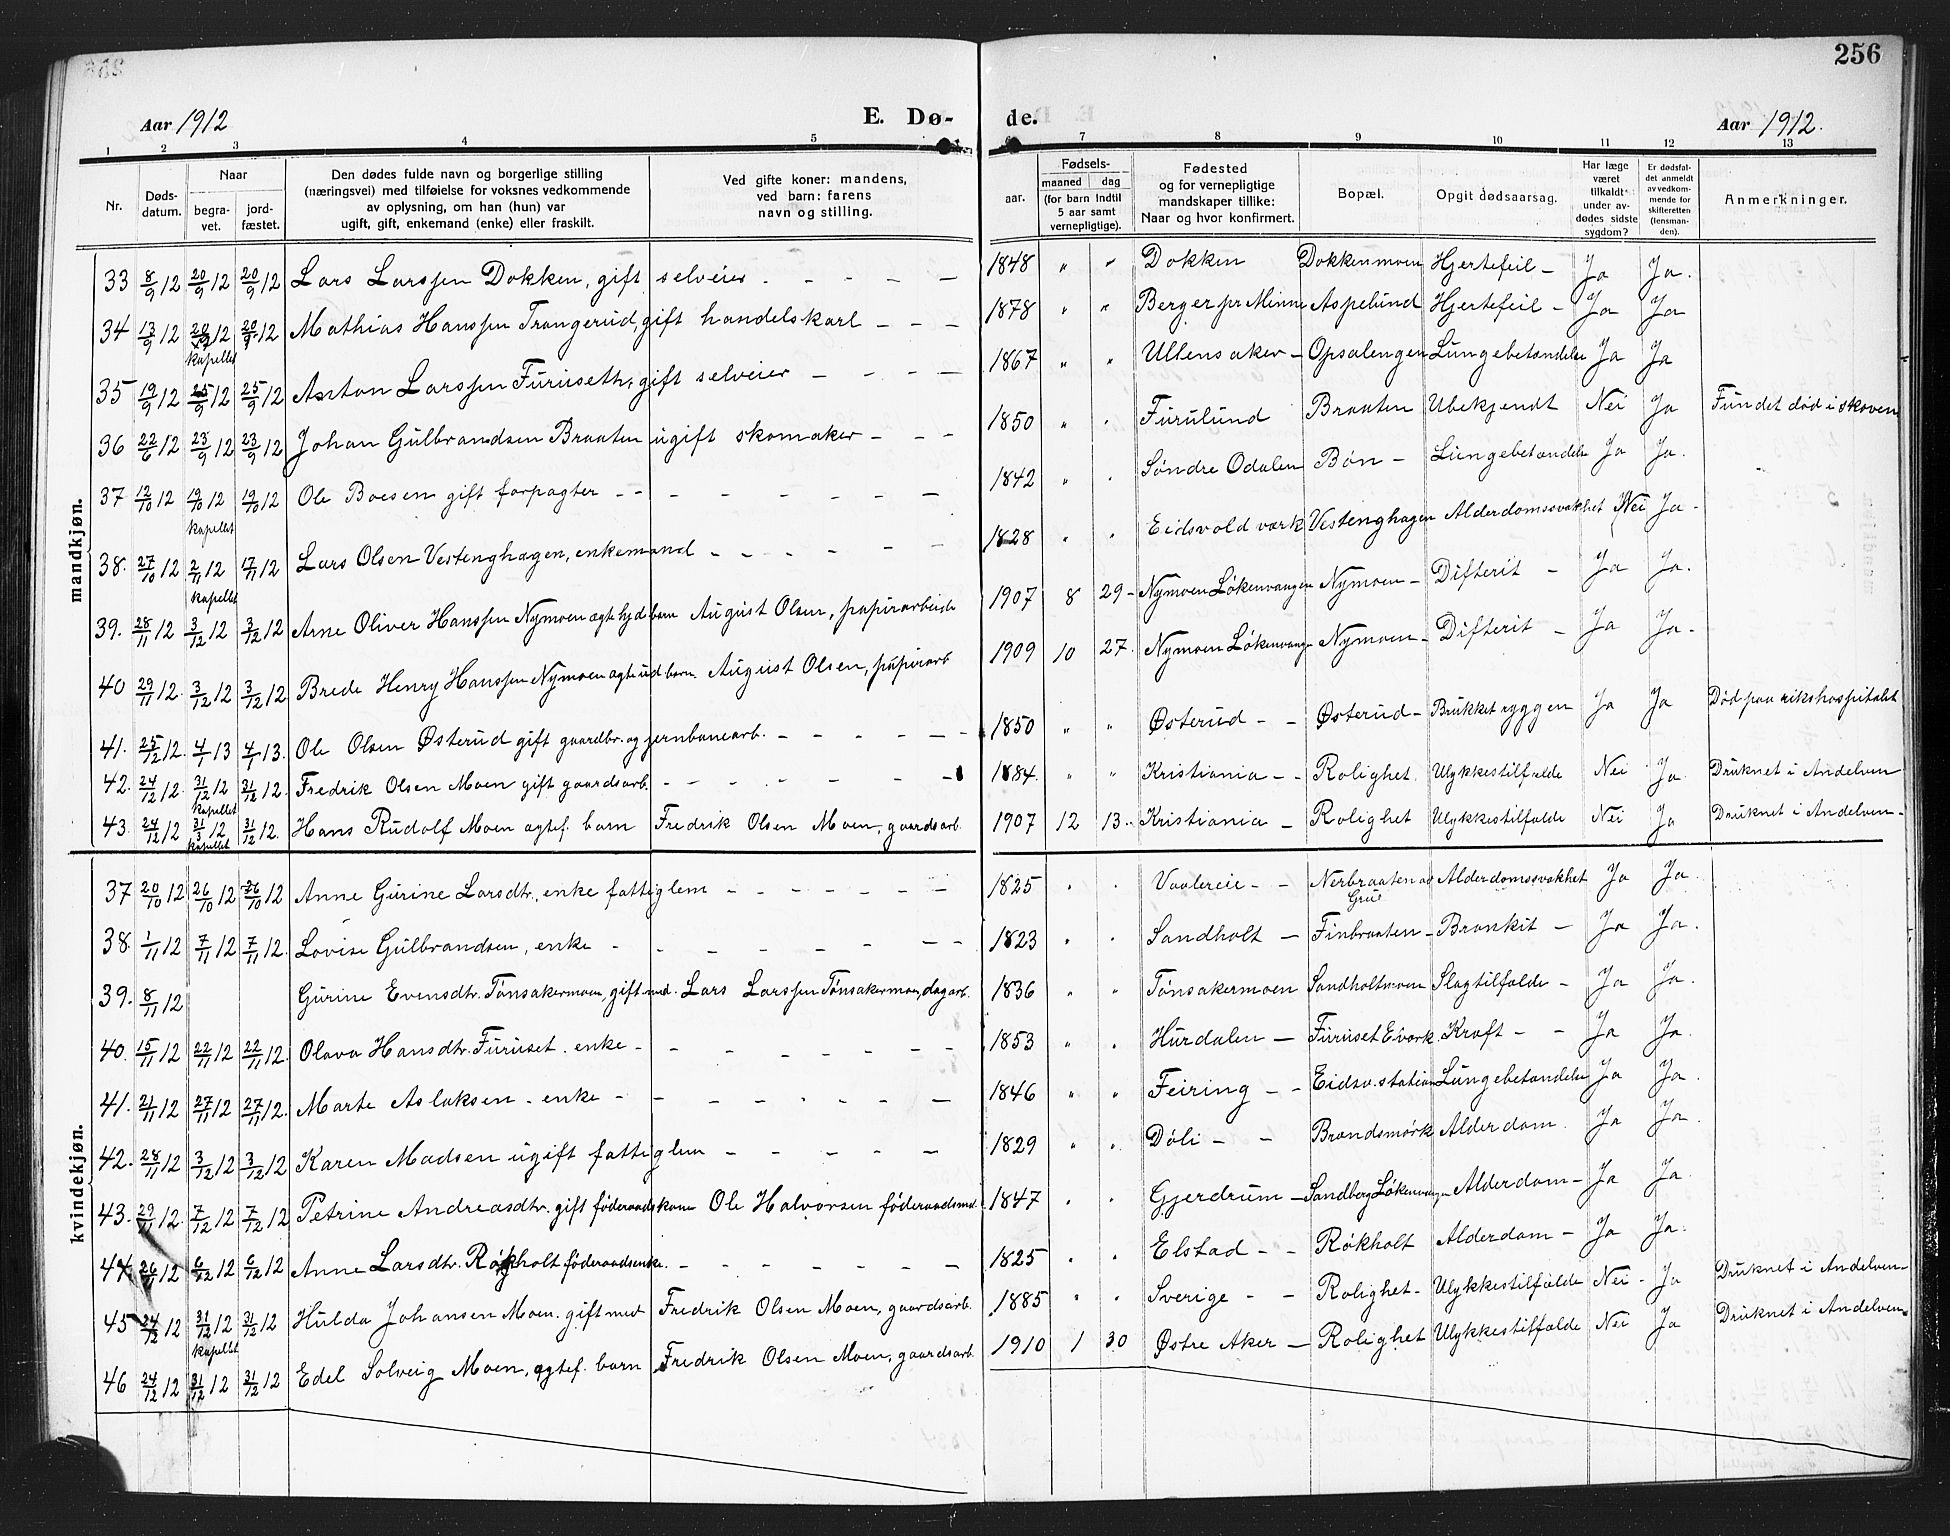 256
Aar 1912
E. Dø-
de.
Aar 1912.
1 2 3 4 5 7 8 9 10 11 12 13
Nr.
Døds-
datum.
Naar
begra-
vet.
jord-
fæstet.
Den dødes fulde navn og borgerlige stilling
(næringsvei) med tilføielse for voksnes vedkommende
av oplysning, om han (hun) var
ugift, gift, enkemand (enke) eller fraskilt.
Ved gifte koner: mandens,
ved barn: farens
navn og stilling.
aar.
Fødsels-
maaned dag
(for barn indtil
5 aar samt
vernepligtige).
Fødested
og for vernepligtige
mandskaper tillike:
Naar og hvor konfirmert.
Bopæl.
Opgit dødsaarsag.
Har læge
været
tilkaldt
under av-
dødes sidste
sygdom?
Er dødsfal-
det anmeldt
av vedkom-
mende for
skifteretten
(lensman-
den).
Anmerkninger.
mandkjøn.
33 8/9 12 20/9 12 20/9 12 Lars Larssen Dokken, gift selveier - - - - 1848 " " Dokken Dokkenmoen Hjertefeil - Ja Ja.
34 13/9 12 20/9 12 kapellet 20/9 12 Mathias Hanssen Trangerud, gift handelskarl - - - 1878 " " Berger pr Minne Aspelund Hjertefeil - Ja Ja
35 19/9 12 25/9 12 25/9 12 Anton Larssen Furuseth, gift selveier - - - - 1867 " " Ullensaker - Opsalengen Lungebetændelse Ja Ja
36 22/6 12 23/9 12 23/9 12 Johan Gulbrandsen Braaten ugift skomaker - - - 1850 " " Furulund Braaten Ubekjendt Nei Ja Fundet død i skoven
37 12/10 12 19/10 12 kapellet 19/10 12 Ole Boesen gift forpagter - - - - - - - - 1842 " " Søndre Odalen Bøn - Lungebetændelse Ja Ja.
38. 27/10 12 2/11 12 kapellet 17/11 12 Lars Olsen Vestenghagen, enkemand - - - - - - 1828 " " Eidsvold værk Vestenghagen Alderdomssvakhet Nei Ja -
39. 28/11 12 3/12 12 3/12 12 Arne Oliver Hanssen Nymoen barn August Olsen, papirarbeide 1907 8 29 - Nymoen Løkenvangen Nymoen - Difterit - Ja Ja.
40 29/11 12. 3/12 12 3/12 12 Brede Henry Hanssen Nymoen barn August Olsen, papirarb 1909 10 27. Nymoen Løkenvangen Nymoen - Difterit - Ja Ja -
41. 25/12 12. 4/1 13 4/1 13. Ole Olsen Østerud gift gaardbr. og jernbanearb. - - - - - - 1850 " " Østerud - - Østerud - Brukket ryggen Ja Ja Død paa rikshospitalet
42. 24/12 12. 31/12 12 kapellet 31/12 12. Fredrik Olsen Moen gift gaardsarb. - - - - - - 1884. " " Kristiania - - Rolighet Ulykkestilfælde Nei Ja Druknet i Andelven
43. 24/12 12 12 kapellet 31/12 12. Hans Rudolf Moen ægtef. barn Fredrik Olsen Moen, gaardsarb. 1907 12 13 - Kristiania - Rolighet Ulykkestilfælde Nei Ja Druknet i Andelven -
kvindekjøn.
37 20/10 12 26/10 12 26/10 12 Anne Gurine Larsdtr., enke fattiglem - - - - - - 1825 " " Vaalereie - - Nerbraaten Grue Alderdomssvakhet Ja Ja.
38. 1/11 12 7/11 12 7/11 12. Lovise Gulbrandsen, enke - - - - - - - 1823 " " Sandholt - Finbraaten - Bronkit - Ja Ja.
39. 8/11 12 Gurine Evensdtr. Tønsakermoen, gift med. Lars Larssen Tønsakermoen, dagarb. 1836 " " Tønsakermoen Sandholtmoen Slagtilfælde - Ja Ja.
40. 15/11 12 22/11 12 22/11 12. Olava Hansdtr. Furuset. enke - - - - - - - 1853 " " Hurdalen - Furuset E værk. Kræft - - Ja Ja.
41. 21/11 12 27/11 12 27/11 12. Marte Aslaksen - enke - - - - - - - 1846 " " Feiring - - Eidsv. station Lungebetændelse Ja Ja.
42. 28/11 12 3/12 12 3/12 12 Karen Madsen ugift fattiglem - - - - - 1829 " " Døli - - Brandsmørk Alderdom. Ja Ja.
43. 29/11 12. 7/12 12 7/12 12 Petrine Andreasdtr. gift føderaadskone Ole Halvorsen føderaadsmd. 1847 " " Gjerdrum - Sandberg Løkenvangen Alderdom - Ja Ja
44. 26/11 12 6/12 12 6/12 12 Anne Larsdtr. Røkholt føderaadsenke. - - - - - - 1825 " " Elstad - - Røkholt Alderdom - Ja Ja.
45 24/12 12 31/12 12 kapellet 31/12 12 Hulda Johansen Moen. gift med Fredrik Olsen Moen, gaardsarb. 1885 " " Sverige - - Rolighet - Ulykkestilfælde Nei - Ja Druknet i Andelven -
46 24/12 12 31/12 12 31/12 12 Edel Solveig Moen, ægtef. barn Fredrik Olsen Moen, gaardsarb. 1910 1 30 Østre Aker - Rolighet Ulykkestilfælde Nei Ja Druknet i Andelven -